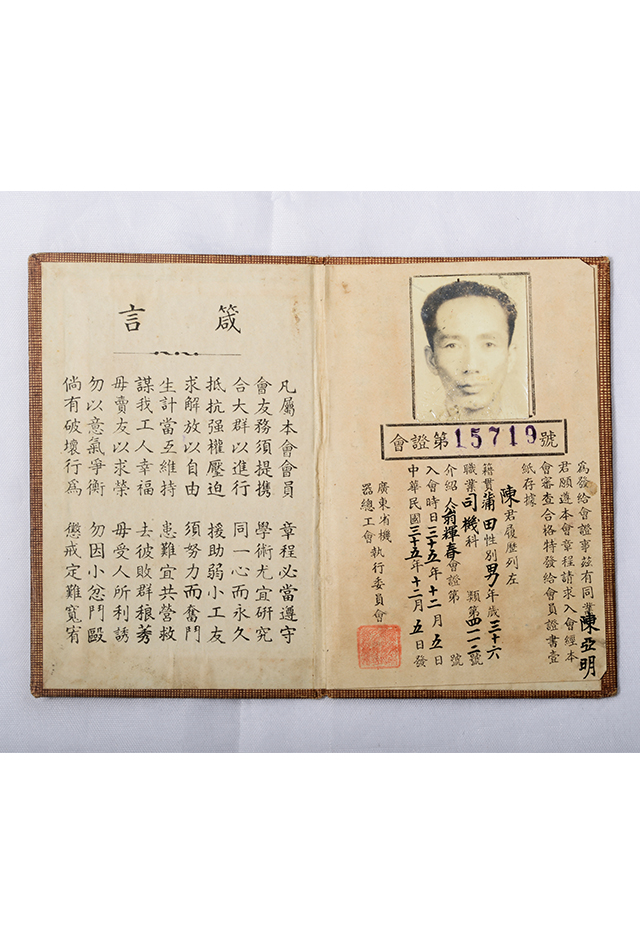 會證第15719號
為發給會證事茲有同業陳亞明
君願遵本會章程請求入會經本
會審查合格特發給會員證書壹
紙存據
陳君履歷列左
籍貫蒲田性別男年歲三十六
職業司機科 類第四一二號
介紹人翁輝春會證第 號
入會時日三十五年十二月五日
中華民國三十五年十二月五日發
廣東省機
器總工會執行委員會
箴言
凡屬本會會員 章程必當遵守
會友務須提攜 學術尤宜研究
合大群以進行 同一心而永久
抵抗強權壓迫 援助弱小工友
求解放以自由 須努力而奮鬥
生計當互維持 患難宜共營救
謀我工人幸福 去彼敗群稂莠
毋賣友以求榮 毋受人所利誘
勿以意氣爭衡 勿因小忿鬥毆
倘有破壞行為 懲戒定難寬宥